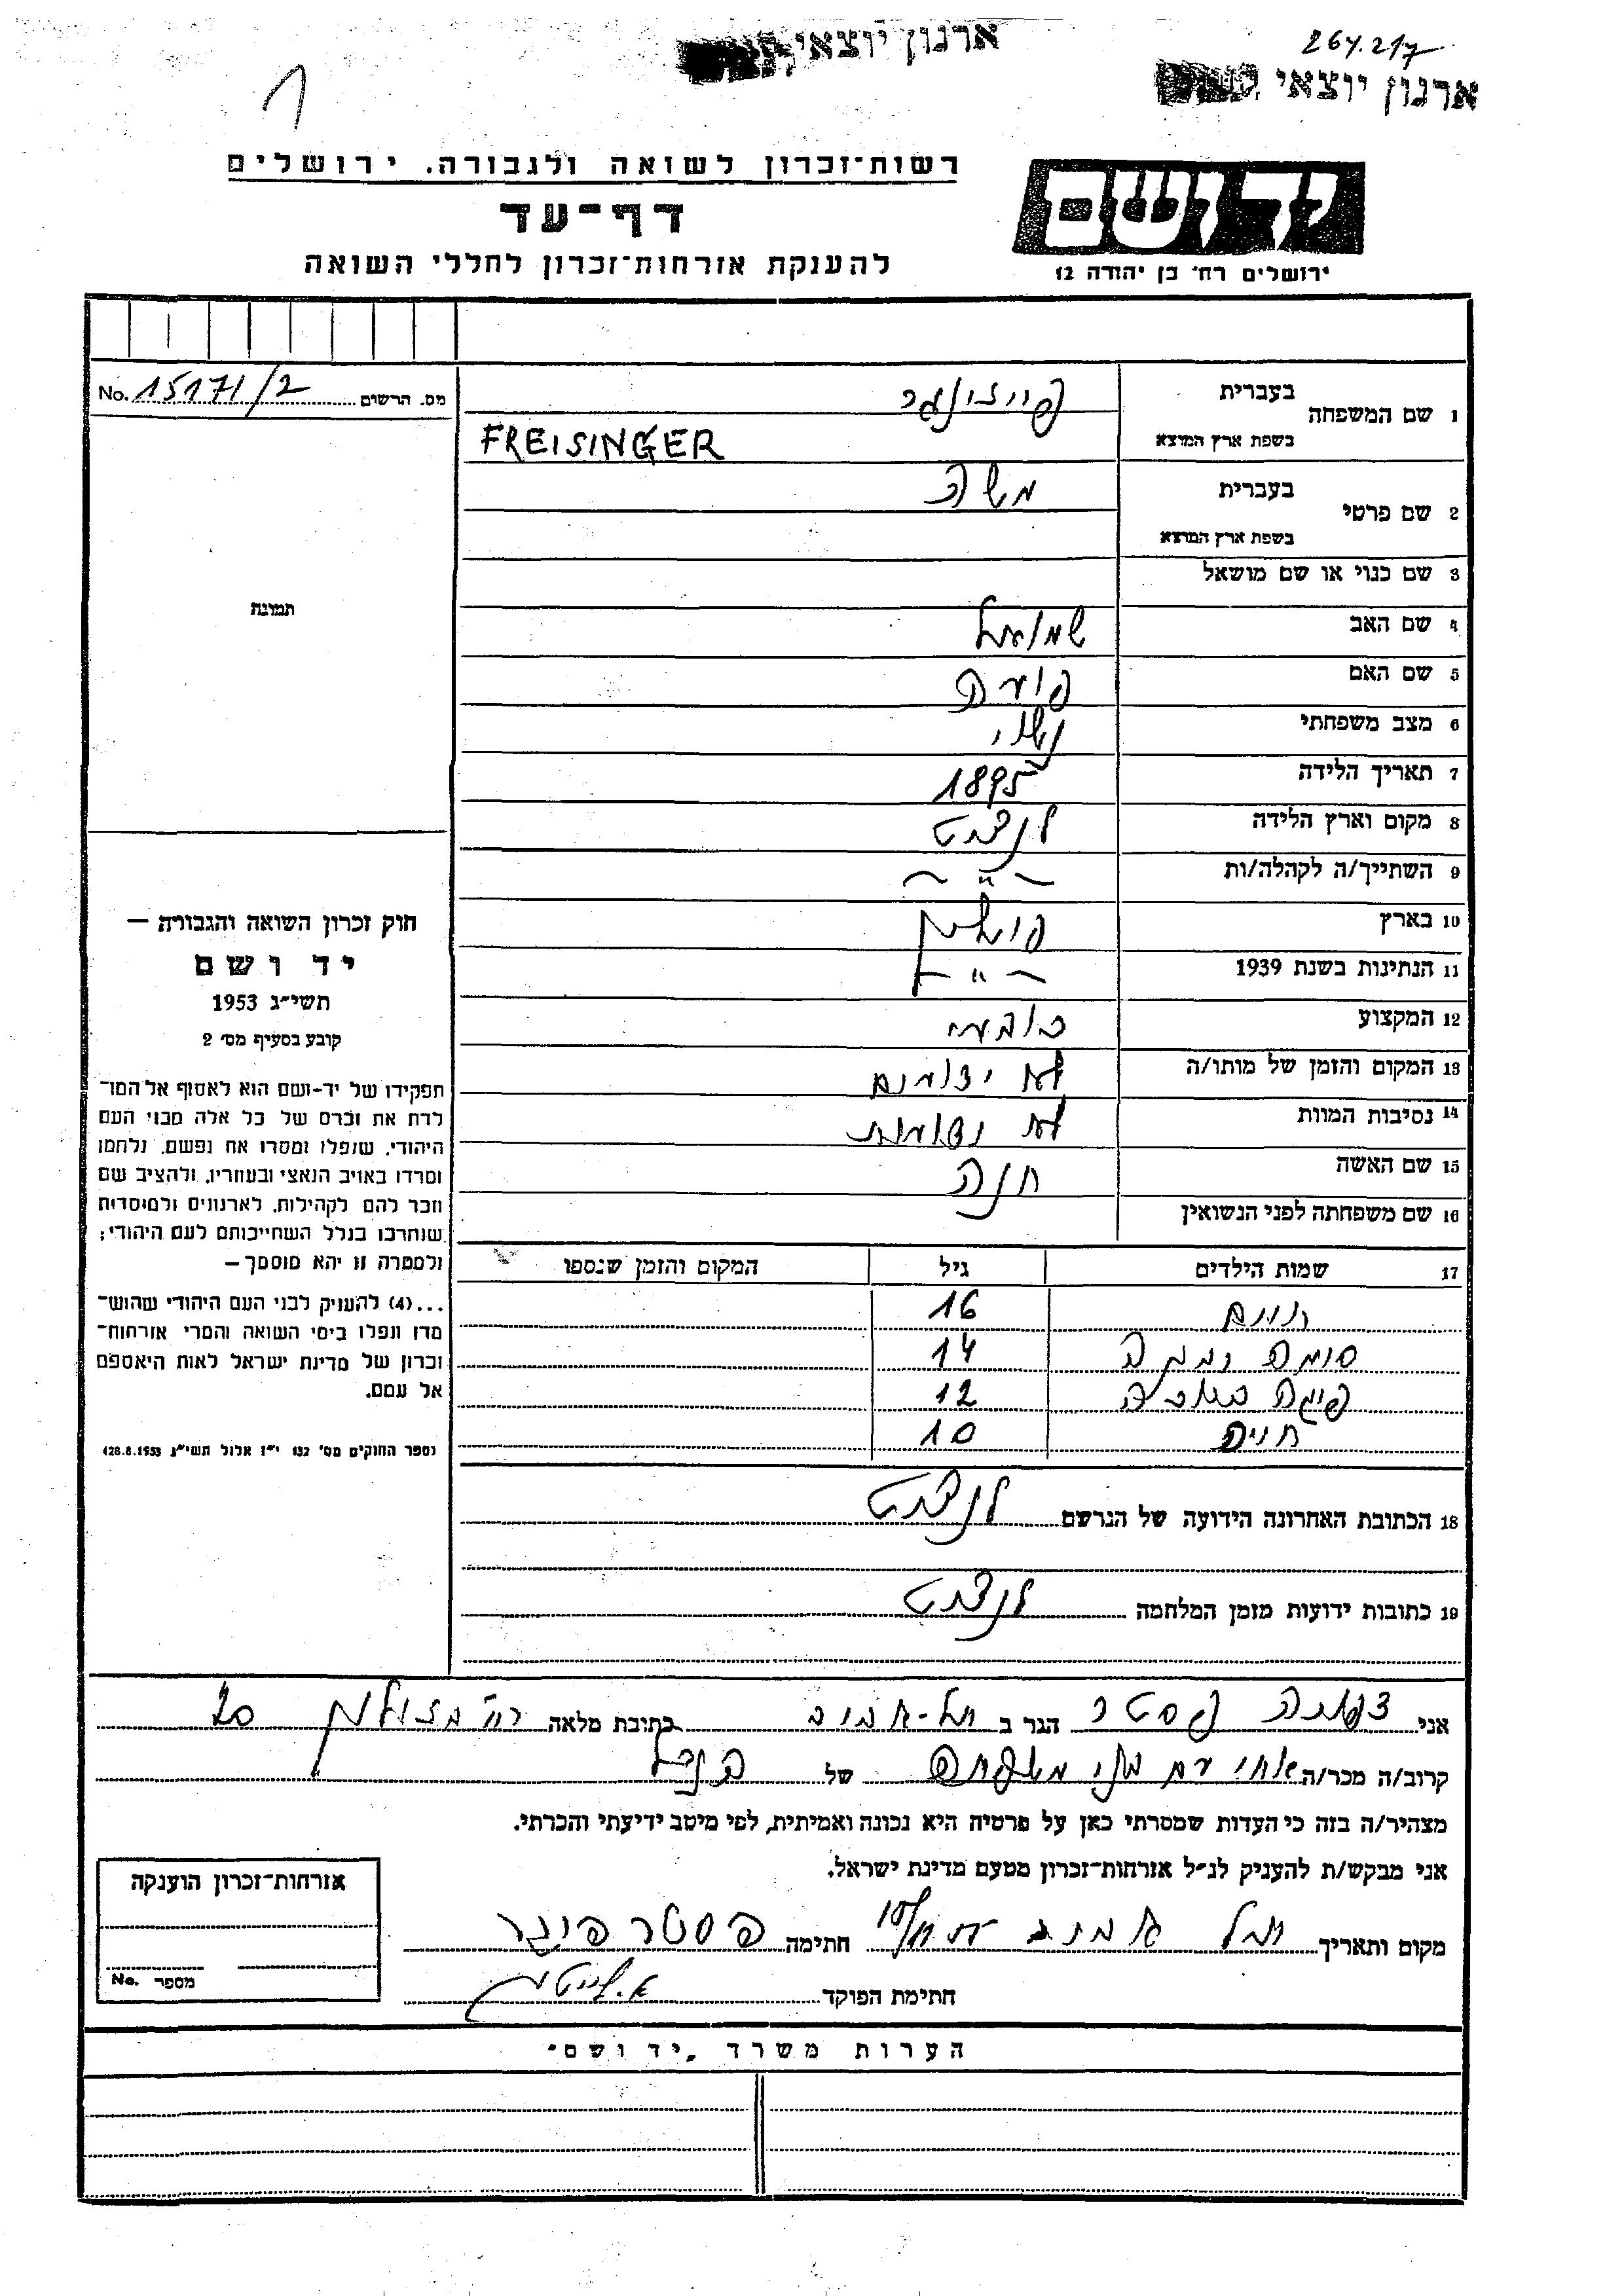 ארגון יוצאי
264.217
ארגון יוצאי
1
רשות־זכרון לשואה ולגבורה. ירושלים
דף־עד
להענקת אזרחות־זכרון לחללי השואה
יד ושם
ירושלים רח׳ בן יהודה 12
מס. הרשום 15171/2 No.
1 שם המשפחה
בעברית
בשפת ארץ המוצא FREISINGER
2 שם פרטי
בעברית משה
בשפת ארץ המוצא
3 שם כנוי או שם מושאל
4 שם האב שמואל
5 שם האם
6 מצב משפחתי נשוי
7 תאריך הלידה 1895
8 מקום וארץ הלידה לנצוט
9 השתייך/ה לקהלה/ות – " –
10 בארץ פולין
11 הנתינות בשנת 1939 – " –
12 המקצוע
13 המקום והזמן של מותו/ה לא
14 נסיבות המוות לא ידועות
15 שם האשה חנה
16 שם משפחתה לפני הנשואין
17 שמות הילדים גיל המקום והזמן שנספו
16
14
12
חיה 10
18 הכתובת האחרונה הידועה של הנרשם לנצוט
19 כתובות ידועות מזמן המלחמה לנצוט
תמונה
חוק זכרון השואה והגבורה —
יד ושם
תשי״ג 1953
קובע בסעיף מס׳ 2
תפקידו של יד-ושם הוא לאסוף אל המו־
לדת את זכרם של כל אלה מבני העם
היהודי, שנפלו ומסרו את נפשם, נלחמו
ומרדו באויב הנאצי ובעוזריו, ולהציב שם
וזכר להם לקהילות, לארגונים ולמוסדות
שנחרבו בגלל השתייכותם לעם היהודי;
ולמטרה זו יהא מוסמך —
...(4) להעניק לבני העם היהודי שהוש־
מדו ונפלו בימי השואה והמרי אזרחות־
זכרון של מדינת ישראל לאות היאספם
אל עמם.
(ספר החוקים מס׳ 132 י״ז אלול תשי״ג 28.8.1953)
אני פסטר הגר ב תל-אביב כתובת מלאה רח׳ 20
קרוב/ה מכר/ה של הנ״ל
מצהיר/ה בזה כי העדות שמסרתי כאן על פרטיה היא נכונה ואמיתית, לפי מיטב ידיעתי והכרתי.
אני מבקש/ת להעניק לנ״ל אזרחות־זכרון מטעם מדינת ישראל.
מקום ותאריך תל אביב חתימה פסטר
חתימת הפוקד
אזרחות־זכרון הוענקה
מספר No.
הערות משרד „יד ושם״